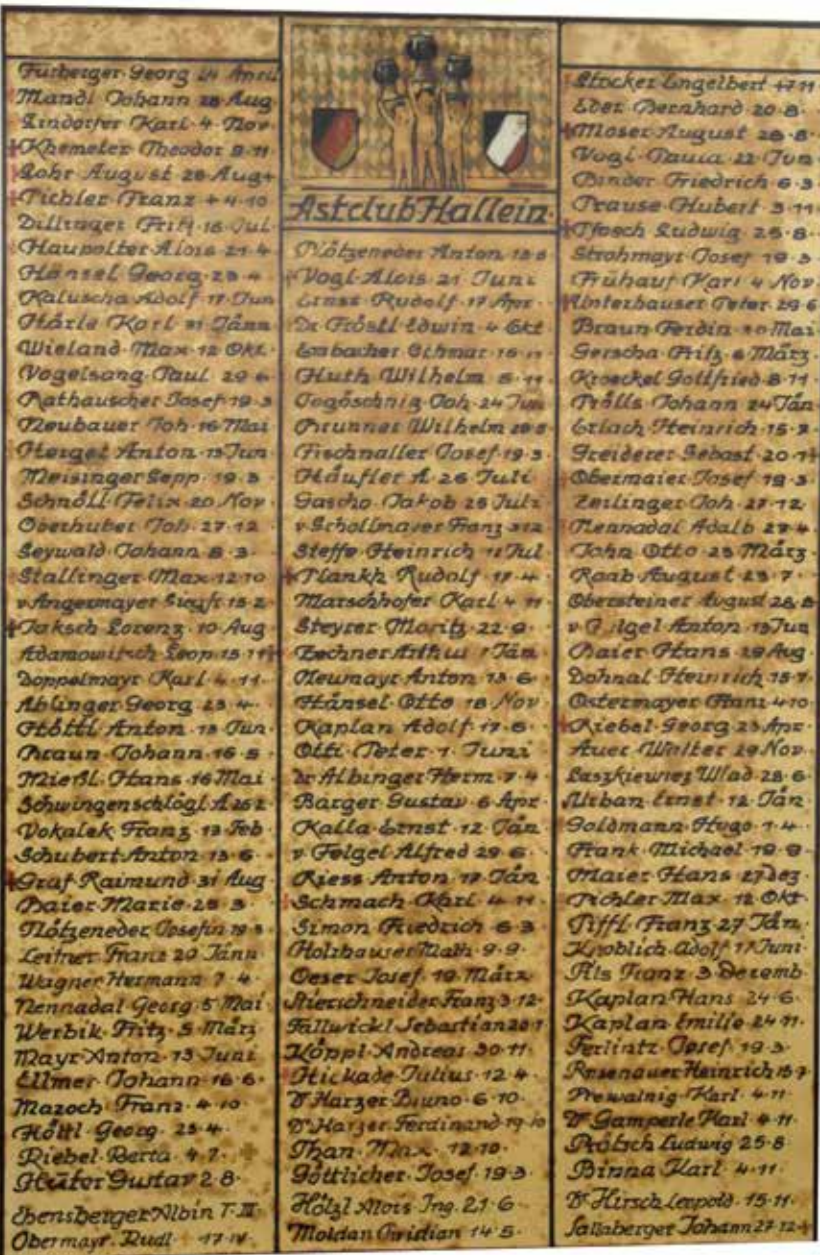 Fürberger Georg 24 April
Mandl Johann 28 Aug
Lindorfer Karl 4 Nov
Khemeter Theodor 9·11
Lohr August 28 Aug
Pichler Franz 4·10
Dillinger Fritz 18 Jul
Haupolter Alois 21·4
Hänsel Georg 23·4
Kaluscha Adolf 17 Jun
Härle Karl 31 Jänn
Wieland Max 12 Okt
Vogelsang Paul 29 6
Rathauscher Josef 19·3
Neubauer Joh 16 Mai
Herget Anton 13 Jun
Meisinger Sepp 19·3
Schnöll Felix 20 Nov
Oberhuber Joh 27·12
Seywald Johann 8·3
Stallinger Max 12·10
v Angermayer 15 2
Jaksch Lorenz 10 Aug
Adamowitsch Leop 15 11
Doppelmayr Karl 4·11
Ablinger Georg 23·4
Höttl Anton 13 Jun
Braun Johann 16·5
Mießl Hans 16 Mai
Schwingenschlögl A 26 2
Vokalek Franz 13 Feb
Schubert Anton 13·6
Graf Raimund 31 Aug
Baier Marie 25·3
Plötzeneder Josefin 19·3
Leitner Franz 29 Jänn
Wagner Hermann 7·4
Nennadal Georg 5 Mai
Werbik Fritz 5 März
Mayr Anton 13 Juni
Ellmer Johann 16·6
Mazoch Franz 4·10
Höttl Georg 23·4
Riebel Berta 4·7
Hütor Gustav 2·8
Ebensberger Albin 7·III
Obermayr Rudl 17·IV
Astclub Hallein
Plötzeneder Anton 13·6
Vogl Alois 21 Juni
Ernst Rudolf 17 Apr
Dr Fröstl Edwin 4 Okt
Embacher Othmar 16·11
Huth Wilhelm 5·11
Jogöschnig Joh 24 Jun
Brunner Wilhelm 28·5
Fischnaller Josef 19·3
Häufler A 26 Juli
Gascho Jakob 25 Juli
v Schollmayer Franz 3 12
Steffe Heinrich 11 Jul
Plankh Rudolf 17·4
Marschhofer Karl 4·11
Steyrer Moritz 22·9
Zechner Arthur 1 Jän
Neumayr Anton 13·6
Hänsel Otto 18 Nov
Kaplan Adolf 17·6
Otti Peter 1 Juni
Dr Albinger Herm 7·4
Barger Gustav 6 Apr
Kalla Ernst 12 Jän
v Felgel Alfred 29·6
Riess Anton 17 Jän
Schmach Karl 4·11
Simon Friedrich 6·3
Holzhauser Math 9·9
Oeser Josef 19 März
Stierschneider Franz 3·12
Fallwickl Sebastian 20·1
Köppl Andreas 30·11
Hickade Julius 12·4
Dr Harzer Bruno 6·10
Dr Harzer Ferdinand 19·10
Than Max 12·10
Göttlicher Josef 19·3
Hölzl Alois Ing. 21·6
Moldan 14·5
Stocker Engelbert 17·11
Eder Bernhard 20·8
Moser August 28·8
Vogl Paula 22 Jun
Binder Friedrich 6·3
Prause Hubert 3·11
Pfosch Ludwig 25·8
Strohmayr Josef 19·3
Frühauf Karl 4 Nov
Unterhauser Peter 29·6
Braun Ferdin 30 Mai
Gerscha Fritz 6 März
Kroeckel Gottfried 8·11
Prölls Johann 24 Jän
Erlach Heinrich 15·7
Greiderer Sebast 20·1
Obermaier Josef 19·3
Zeilinger Joh 27·12
Nennadal Adalb 27·4
John Otto 23 März
Raab August 23·7
Obersteiner August 28·8
v Felgel Anton 13 Jun
Baier Hans 29 Aug
Dohnal Heinrich 15·7
Ostermayer Franz 4·10
Riebel Georg 23 Apr
Auer Walter 29 Nov
Laszkiewicz Wlad 28·6
Urban Ernst 12 Jän
Goldmann Hugo 1·4
Frank Michael 19·9
Maier Hans 27 Dez
Pichler Max 12 Okt
Piffl Franz 27 Jän
Knoblich Adolf 17 Juni
Als Franz 3 Dezemb
Kaplan Hans 24·6
Kaplan Emilie 24·11
Ferlintz Josef 19·3
Rosenauer Heinrich 15·7
Prewalnig Karl 4·11
Dr Gamperle Karl 4·11
Prötsch Ludwig 25·8
Binna Karl 4·11
Dr Hirsch Leopold 15·11
Salzberger Johann 27·12